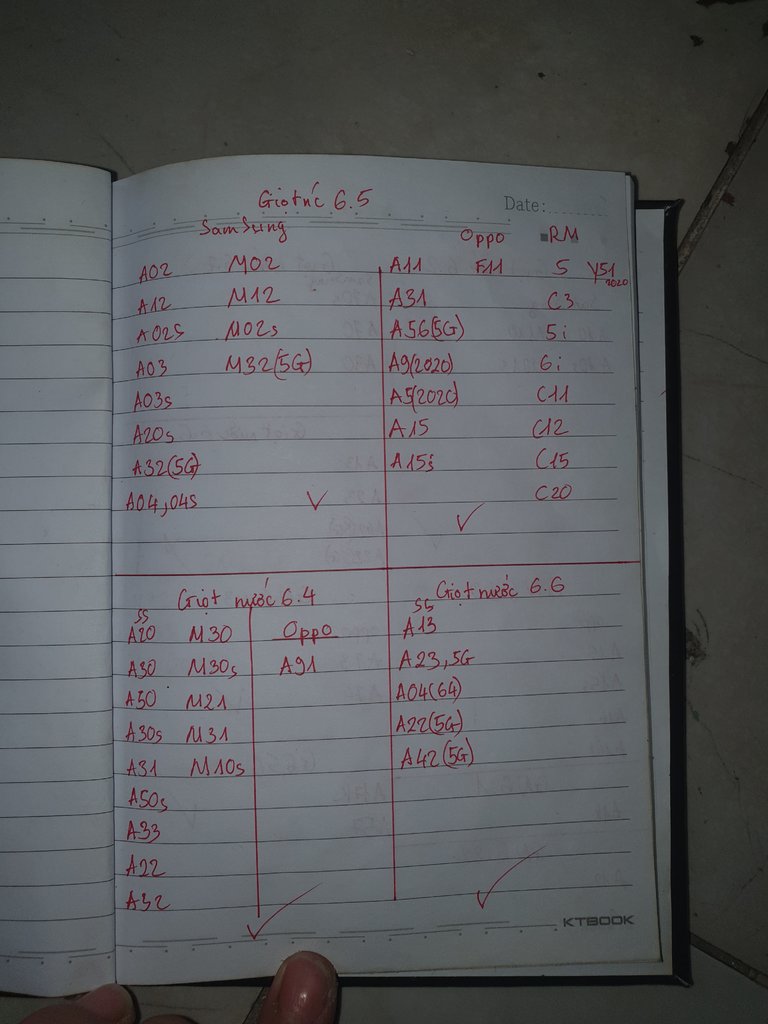 Giọt nc 6.5
Date:
SamSung
Oppo RM
A02 M02 A11 F11 5 Y51 2020
A12 M12 A31 C3
A02s M02s A56(5G) 5i
A03 M32(5G) A9(2020) 6i
A03s A5(2020) C11
A20s A15 C12
A32(5G) A15s C15
A04,04s C20
Giọt nước 6.4 Giọt nước 6.6
SS SS
A20 M30 Oppo A13
A30 M30s A91 A23,5G
A50 M21 A04(64)
A30s M31 A22(5G)
A31 M10s A42(5G)
A50s
A33
A22
A32
KTBOOK